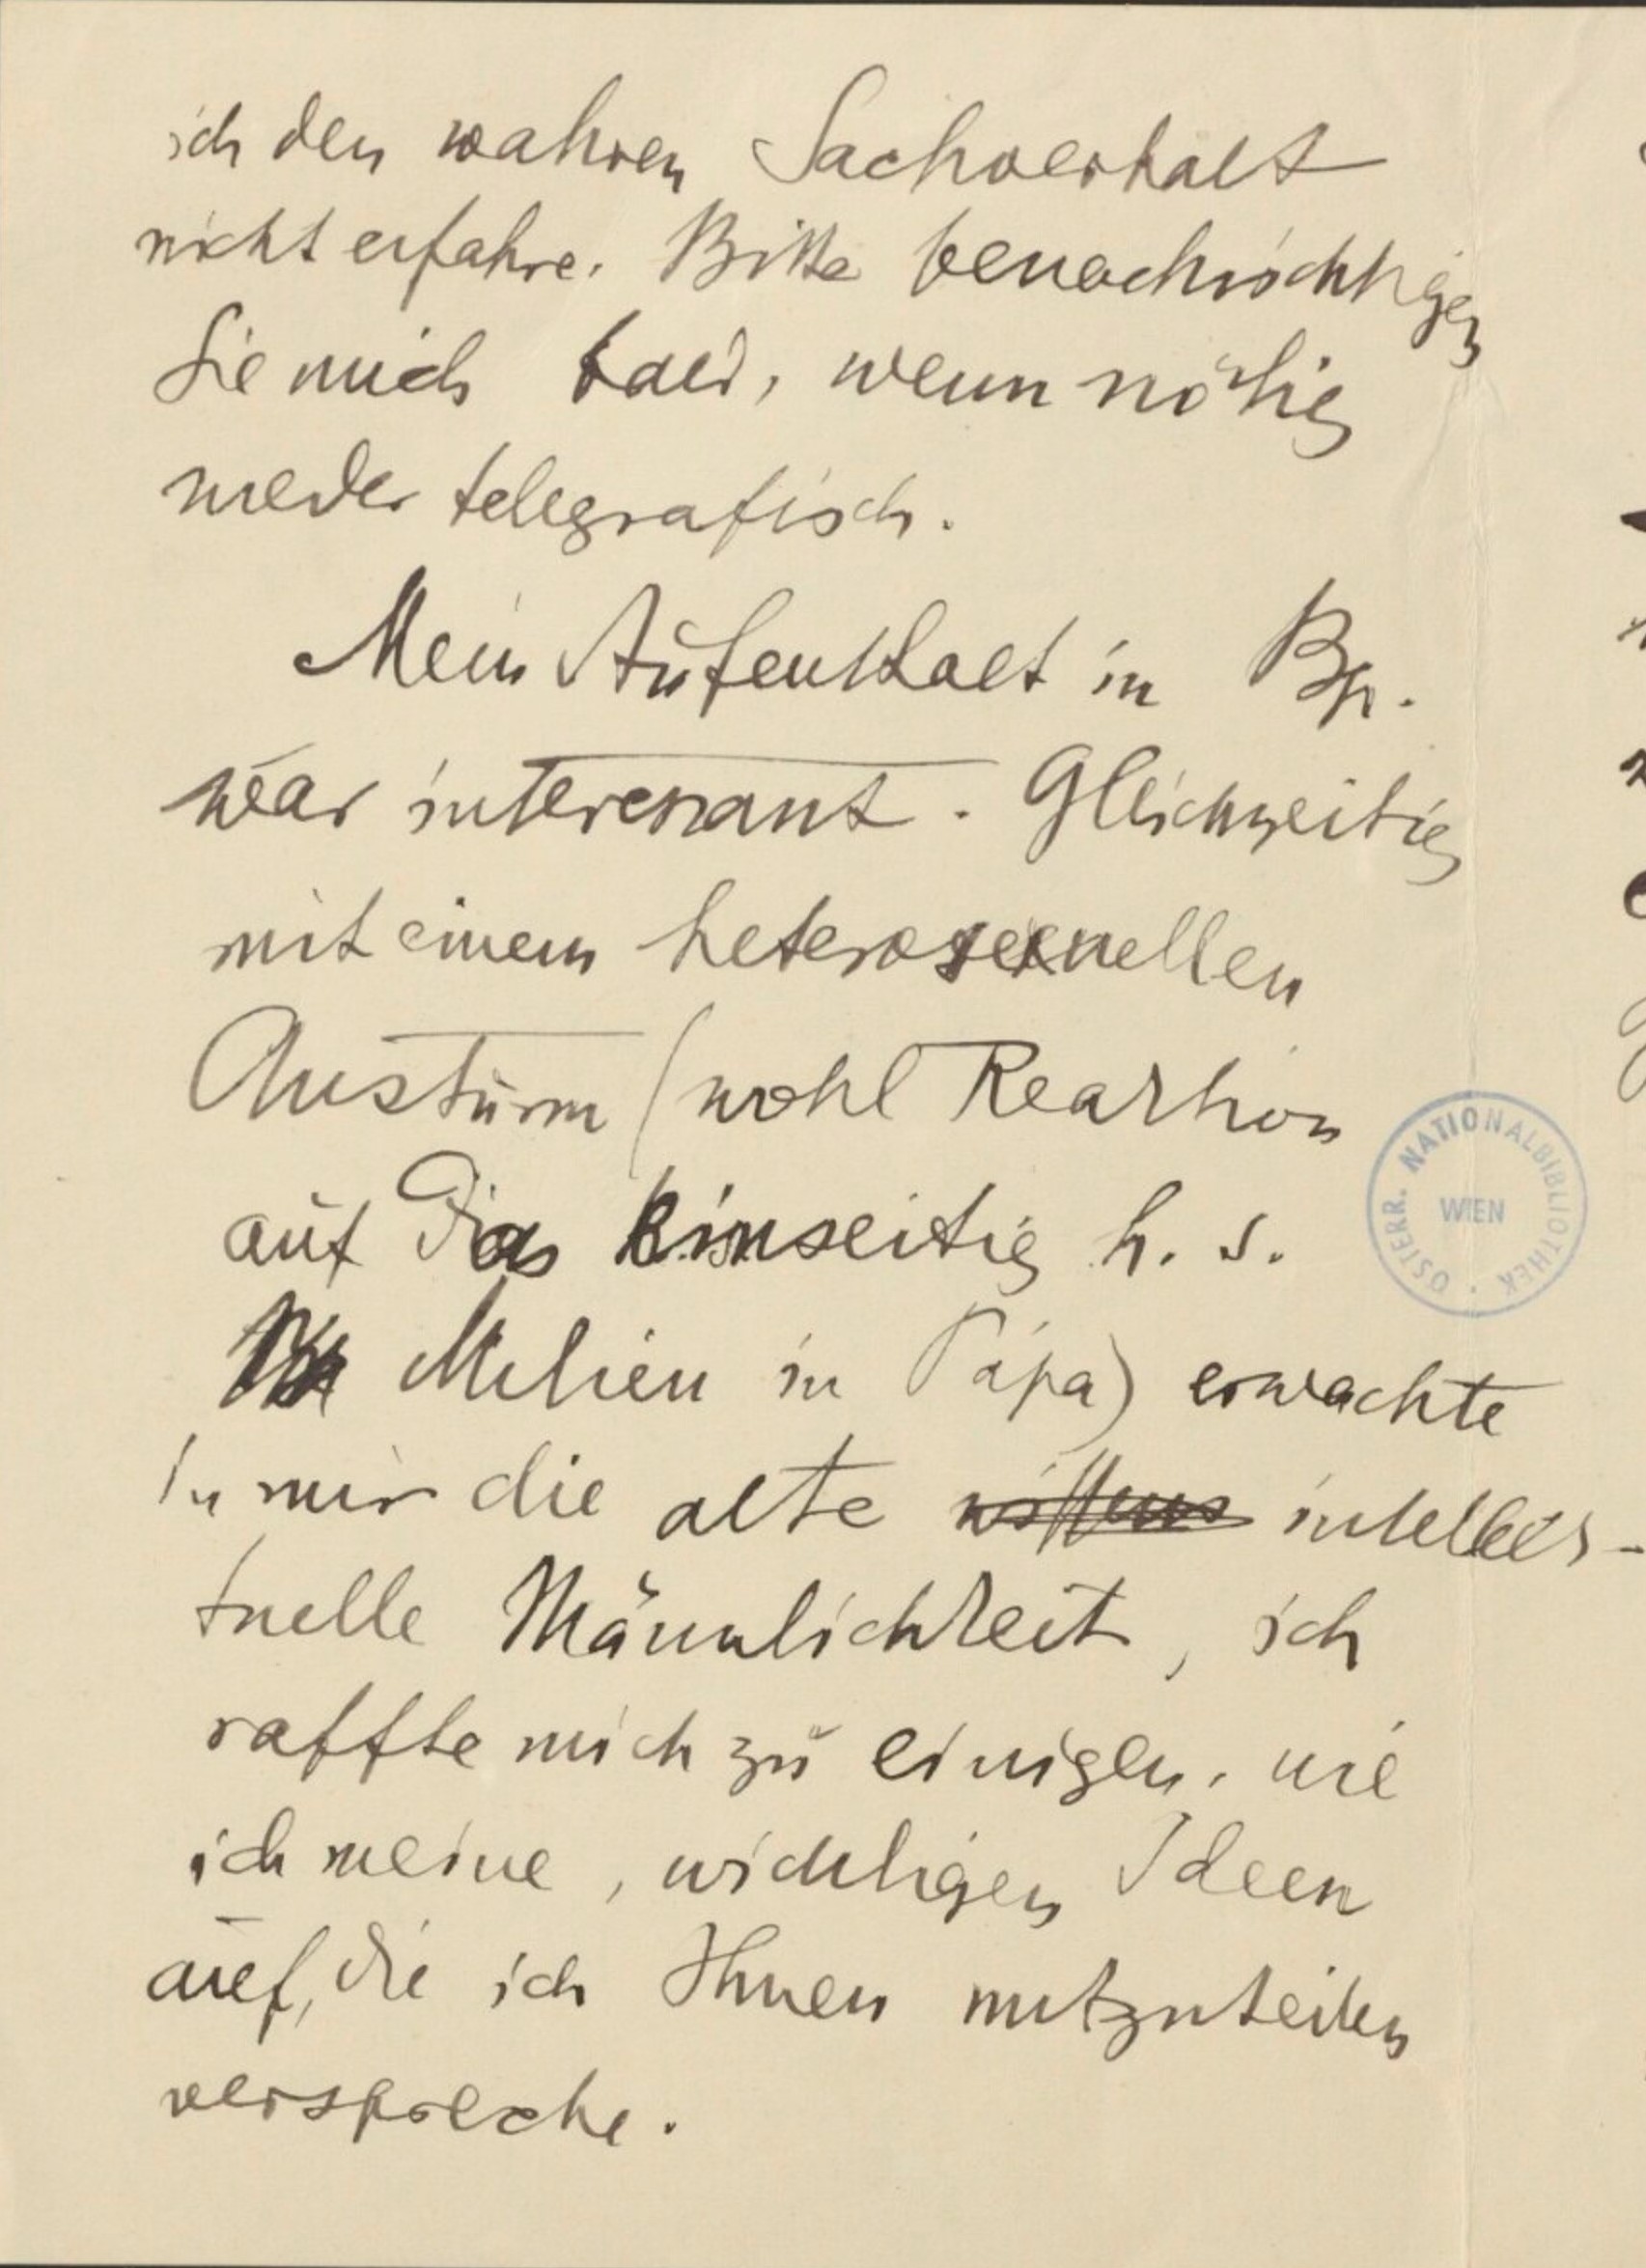 ich den wahren Sachverhalt
nicht erfahre. Bitte benachrichtigen
Sie mich bald, wenn nötig
wieder telegrafisch.
Mein Aufenthalt in Bp.
war interessant. Gleichzeitig
mit einem heterosexuellen
Ansturm (wohl Reaktion
auf das einseitig h. s.
Milieu in Pápa) erwachte
in mir die alte intellek-
tuelle Männlichkeit, ich
raffte mich zu einigen, wie
ich meine, wichtigen Ideen
auf, die ich Ihnen mitzuteilen
verspreche.
ÖSTERR. NATIONALBIBLIOTHEK
WIEN